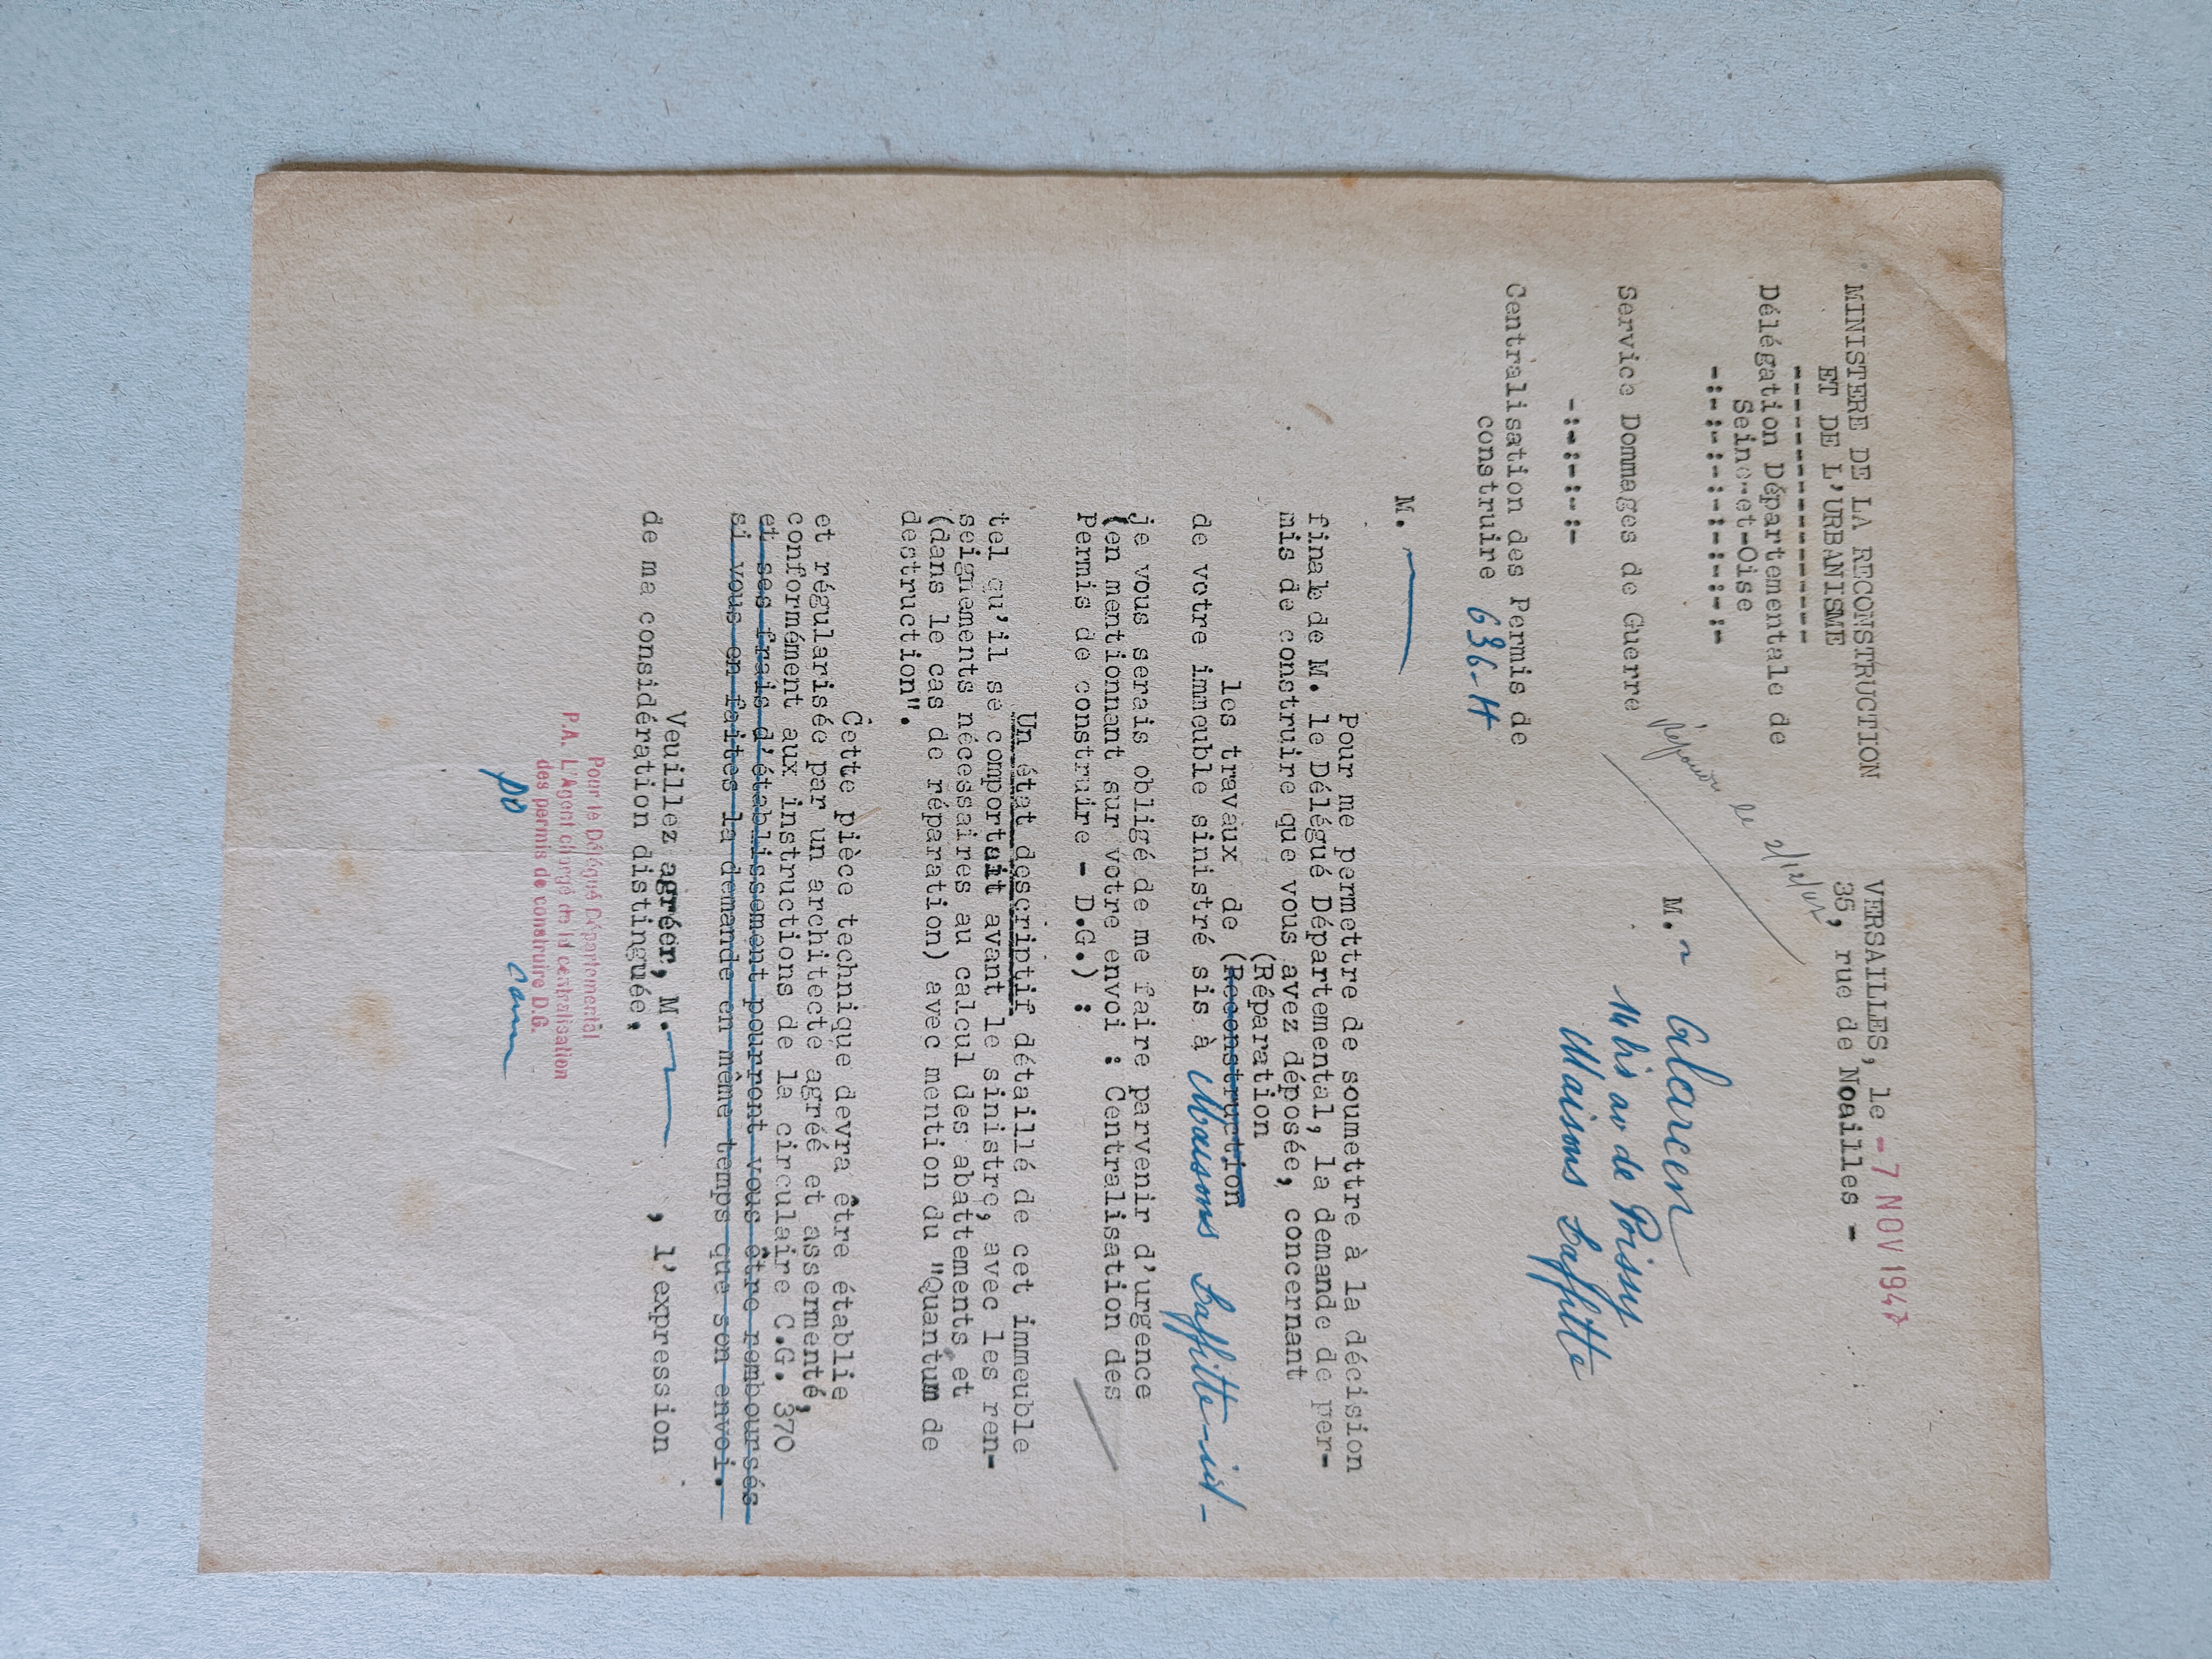 MINISTERE DE LA RECONSTRUCTION
ET DE L'URBANISME
-----------------
Délégation Départementale de
Seine-et-Oise
-:-:-:-:-:-:-:-:-
Service Dommages de Guerre
-:-:-:-:-
Centralisation des Permis de
construire 636-H
VERSAILLES, le - 7 NOV 1947
35, rue de Noailles -
le 2/12/47
M.
14 bis av de Poissy
Maisons Laffitte
M.
Pour me permettre de soumettre à la décision
finale de M. le Délégué Départemental, la demande de per-
mis de construire que vous avez déposée, concernant
(Réparation
les travaux de (Reconstruction
de votre immeuble sinistré sis à Maisons Laffitte
je vous serais obligé de me faire parvenir d'urgence
(en mentionnant sur votre envoi : Centralisation des
Permis de construire - D.G.) :
Un état descriptif détaillé de cet immeuble
tel qu'il se comportait avant le sinistre, avec les ren-
seignements nécessaires au calcul des abattements et
(dans le cas de réparation) avec mention du "Quantum de
destruction".
Cette pièce technique devra être établie
et régularisée par un architecte agréé et assermenté,
conformément aux instructions de la circulaire C.G. 370
et ses frais d'établissement pourront vous être remboursés
si vous en faites la demande en même temps que son envoi.
Veuillez agréer, M. , l'expression
de ma considération distinguée,
Pour le Délégué Départemental
P.A. L'Agent chargé de la centralisation
des permis de construire D.G.